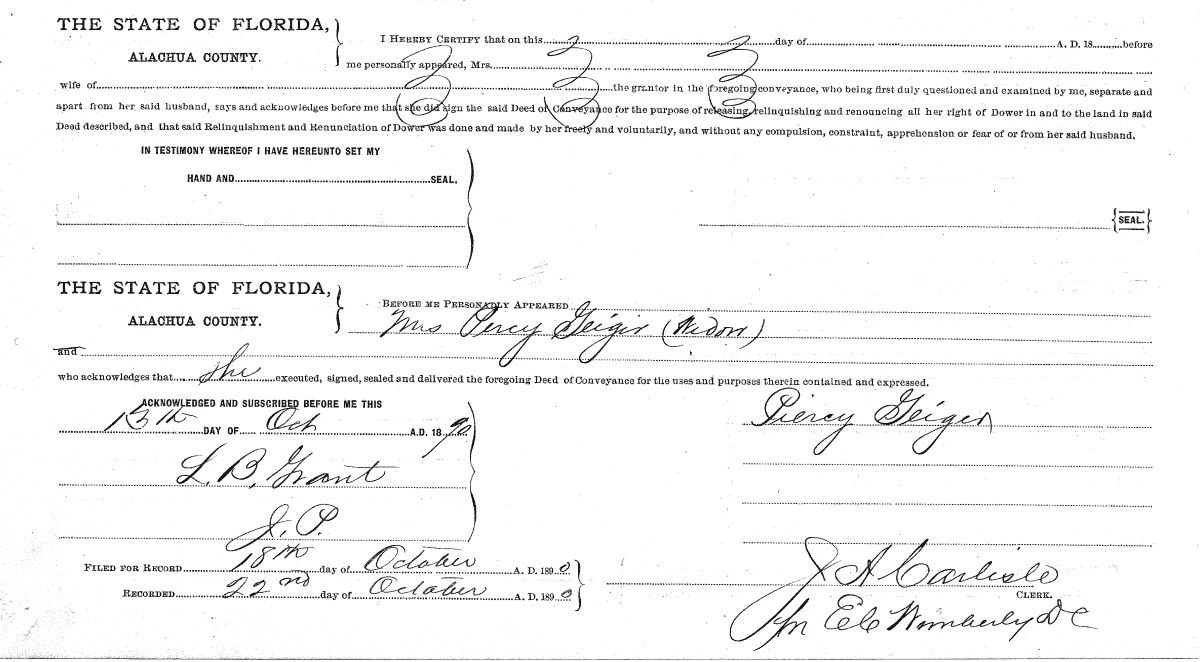 THE STATE OF FLORIDA,
ALACHUA COUNTY.
I HEREBY CERTIFY that on this..........day of.......... A. D. 18..........before
me personally appeared, Mrs..........
wife of..........the grantor in the foregoing conveyance, who being first duly questioned and examined by me, separate and
apart from her said husband, says and acknowledges before me that she did sign the said Deed of Conveyance for the purpose of releasing, relinquishing and renouncing all her right of Dower in and to the land in said
Deed described, and that said Relinquishment and Renunciation of Dower was done and made by her freely and voluntarily, and without any compulsion, constraint, apprehension or fear of or from her said husband.
IN TESTIMONY WHEREOF I HAVE HEREUNTO SET MY
HAND AND..........SEAL.
{SEAL.}
THE STATE OF FLORIDA,
ALACHUA COUNTY.
BEFORE ME PERSONALLY APPEARED
Mrs Percy Geiger (Widow)
and
who acknowledges that she executed, signed, sealed and delivered the foregoing Deed of Conveyance for the uses and purposes therein contained and expressed.
ACKNOWLEDGED AND SUBSCRIBED BEFORE ME THIS
13th DAY OF Oct A.D. 1890
L. B. Grant
J. P.
Piercy Geiger
FILED FOR RECORD 18th day of October A. D. 1890
RECORDED 22nd day of October A. D. 1890
J A Carlisle
CLERK.
Wimberly DC